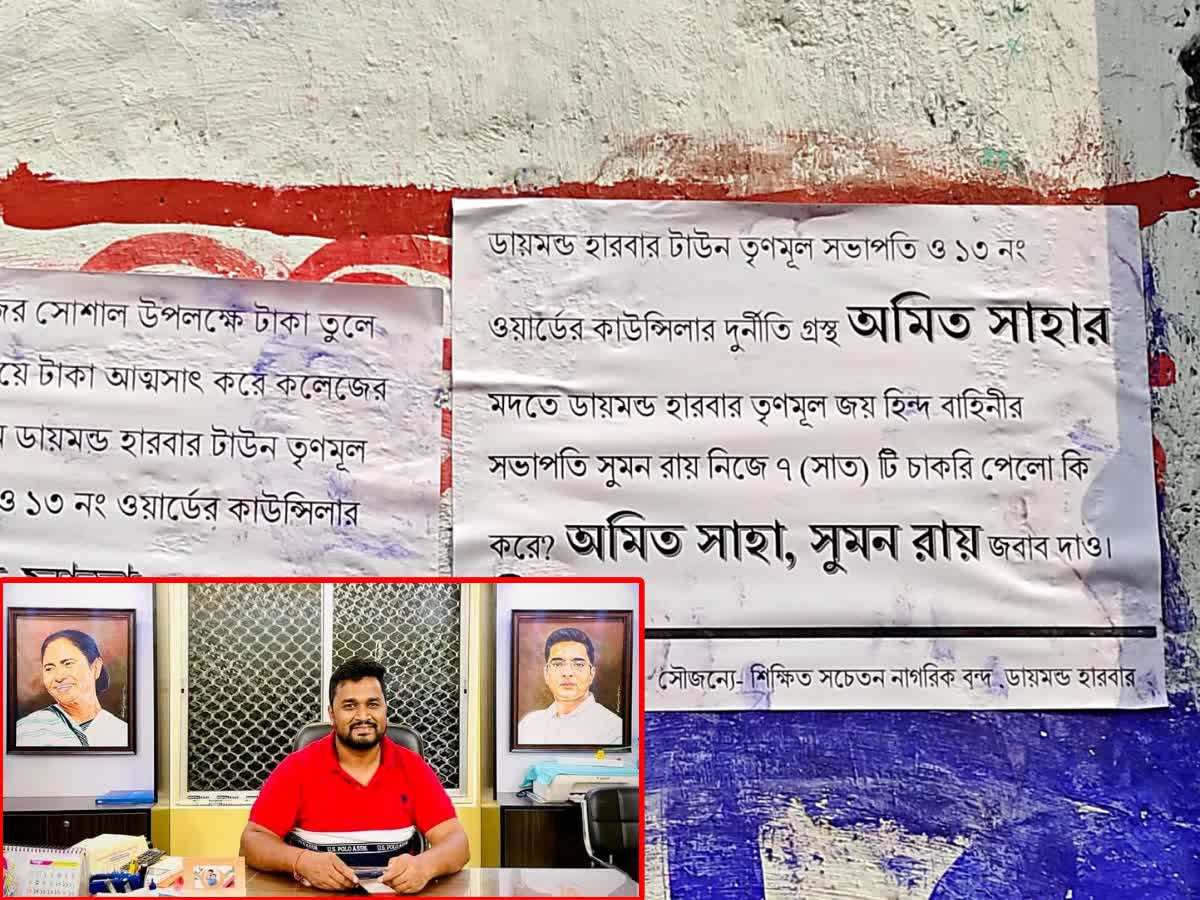 সোশাল উপলক্ষে টাকা তুলে
টাকা আত্মসাৎ করে কলেজের
ডায়মন্ড হারবার টাউন তৃণমূল
ও ১৩ নং ওয়ার্ডের কাউন্সিলার
ডায়মন্ড হারবার টাউন তৃণমূল সভাপতি ও ১৩ নং
ওয়ার্ডের কাউন্সিলার দুর্নীতি গ্রস্থ অমিত সাহার
মদতে ডায়মন্ড হারবার তৃণমূল জয় হিন্দ বাহিনীর
সভাপতি সুমন রায় নিজে ৭ (সাত) টি চাকরি পেলো কি
করে? অমিত সাহা, সুমন রায় জবাব দাও।
সৌজন্যে- শিক্ষিত সচেতন নাগরিক বৃন্দ, ডায়মন্ড হারবার
U.S. POLO ASSN. U.S. POLO ASSN.